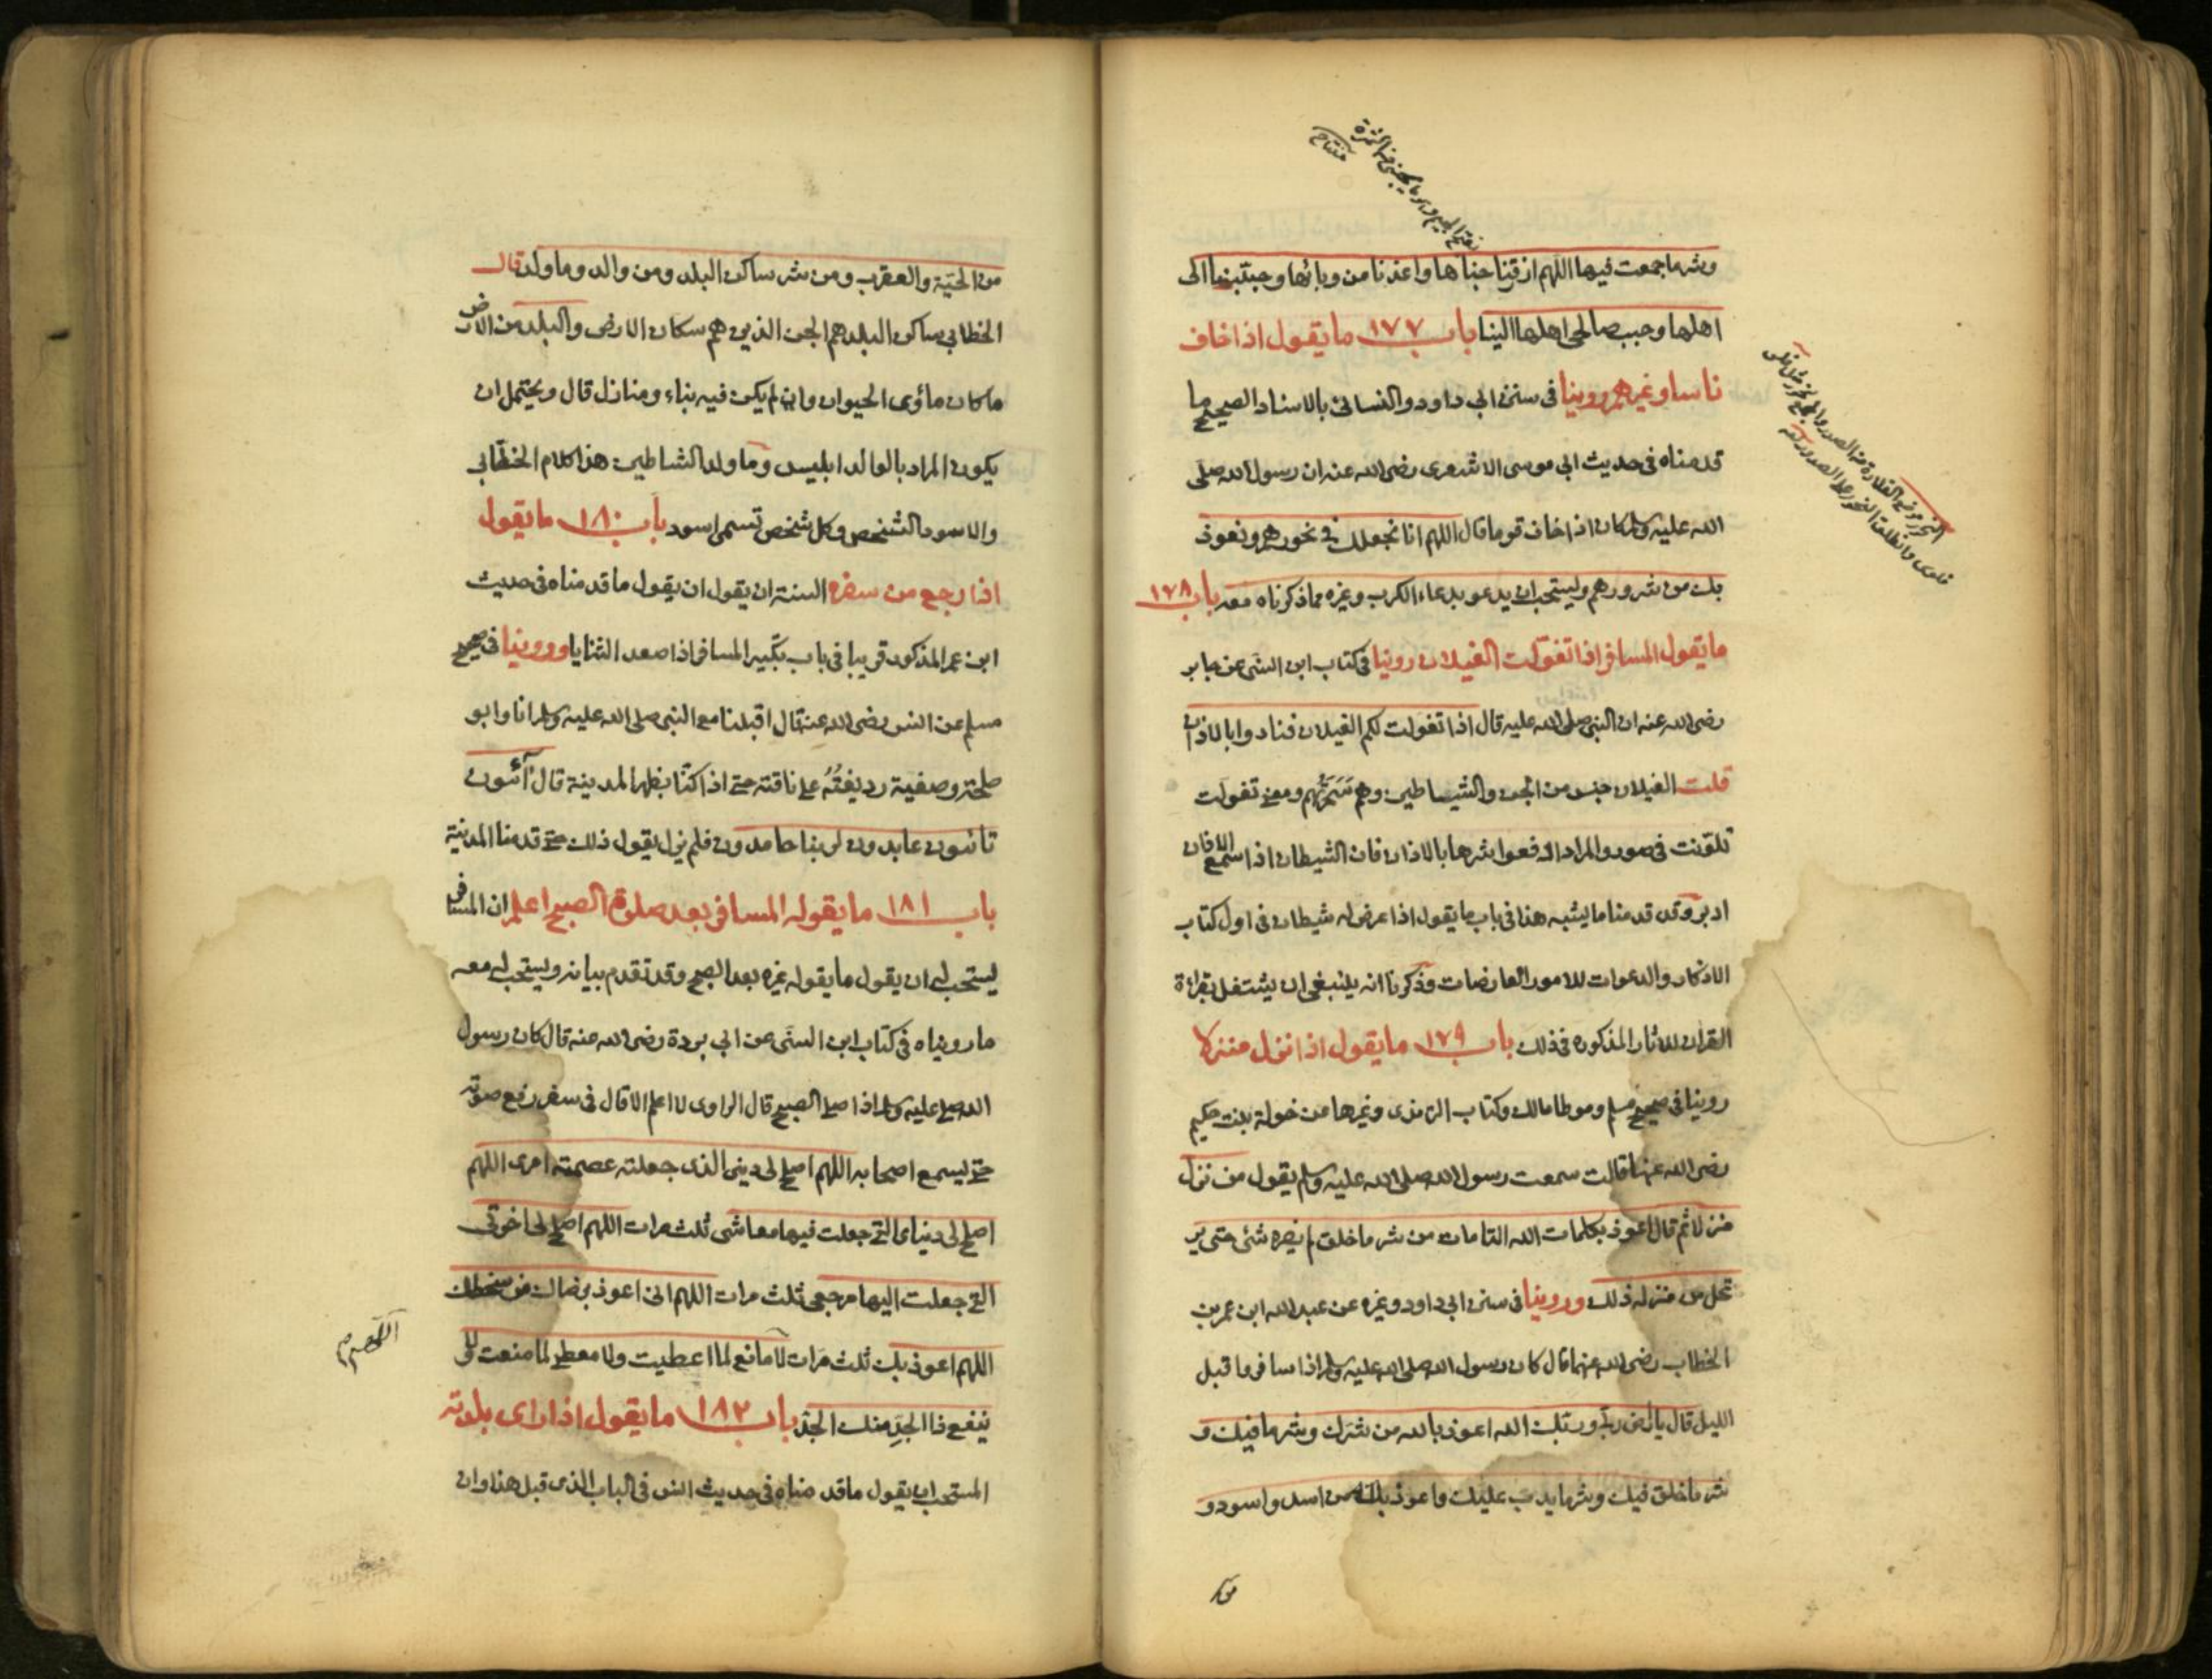 وشر ما جمعت فيها اللهم ارزقنا جناها واعذنا من وبائها وحببنا الى
اهلها وحبب صالحى اهلها الينا باب ١٧٧ ما يقول اذا خاف
ناسا او غيرهم روينا فى سنن ابى داود والنسائى بالاسناد الصحيح ما
قدمناه فى حديث ابى موسى الاشعرى رضى الله عنه ان رسول الله صلى
الله عليه وسلم كان اذا خاف قوما قال اللهم انا نجعلك فى نحورهم ونعوذ
بك من شرورهم ويستحب ان يدعو بدعاء الكرب وغيره مما ذكرناه معه باب ١٧٨
ما يقول المسافر اذا تغولت الغيلان روينا فى كتاب ابن السنى عن جابر
رضى الله عنه ان النبى صلى الله عليه قال اذا تغولت لكم الغيلان فنادوا بالاذان
قلت الغيلان جنس من الجن والشياطين وهم سحرتهم ومعنى تغولت
تلونت فى صور والمراد ادفعوا شرها بالاذان فان الشيطان اذا سمع الاذان
ادبر وقد قدمنا ما يشبه هذا فى باب ما يقول اذا عرض له شيطان فى اول كتاب
الاذكار والدعوات للامور العارضات وذكرنا انه ينبغى ان يشتغل بقراءة
القران للاثار المذكوره فى ذلك باب ١٧٩ ما يقول اذا نزل منزلا
روينا فى صحيح مسلم وموطا مالك وكتاب الترمذى وغيرها عن خولة بنت حكيم
رضى الله عنها قالت سمعت رسول الله صلى الله عليه وسلم يقول من نزل
منزلا ثم قال اعوذ بكلمات الله التامات من شر ما خلق لم يضره شئ حتى ير
تحل من منزله ذلك وروينا فى سنن ابى داود وغيره عن عبد الله ابن عمر بن
الخطاب رضى الله عنهما قال كان رسول الله صلى الله عليه وسلم اذا سافر فاقبل
الليل قال يا ارض ربى وربك الله اعوذ بالله من شرك وشر ما فيك و
شر ما خلق فيك وشر ما يدب عليك واعوذ بك من اسد واسود و
من
من الحية والعقرب ومن شر ساكن البلد ومن والد وما ولد قال
الخطابى ساكن البلد هم الجن الذين هم سكان الارض والبلد من الارض
ما كان مأوى الحيوان وان لم يكن فيه بناء ومنازل قال ويحتمل ان
يكون المراد بالوالد ابليس وما ولد الشياطين هذا كلام الخطابى
والاسود الشخص وكل شخص تسمى اسود باب ١٨٠ ما يقول
اذا رجع من سفره السنة ان يقول ان يقول ما قدمناه فى حديث
ابن عمر المذكور قريبا فى باب تكبير المسافر اذا صعد الثنايا وروينا فى صحيح
مسلم عن انس رضى الله عنه قال اقبلنا مع النبى صلى الله عليه وسلم انا وابو
طلحة وصفية رديفته على ناقته حتى اذا كنا بظهر المدينة قال آئبون
تائبون عابدون لربنا حامدون فلم يزل يقول ذلك حتى قدمنا المدينة
باب ١٨١ ما يقوله المسافر بعد صلوة الصبح اعلم ان المسافر
يستحب له ان يقول ما يقوله غيره بعد الصبح وقد تقدم بيانه ويستحب له معه
ما رويناه فى كتاب ابن السنى عن ابى بردة رضى الله عنه قال كان رسول
الله صلى عليه وسلم اذا صلى الصبح قال الراوى لا اعلم الا قال فى سفر رفع صوته
حتى يسمع اصحابه اللهم اصلح لى دينى الذى جعلته عصمة امرى اللهم
اصلح لى دنياى التى جعلت فيها معاشى ثلث مرات اللهم اصلح لى اخرتى
التى جعلت اليها مرجعى ثلث مرات اللهم انى اعوذ برضاك من سخطك
اللهم اعوذ بك ثلث مرات لا مانع لما اعطيت ولا معطى لما منعت ولا
ينفع ذا الجد منك الجد باب ١٨٢ ما يقول اذا راى بلدته
المستحب ان يقول ما قدمناه فى حديث انس فى الباب الذى قبل هذا وان